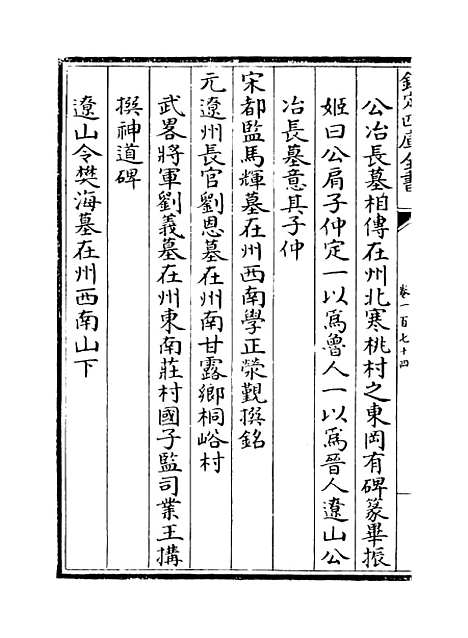 欽定四庫全書
卷一百七十四
公冶長墓相傳在州北寒桃村之東岡有碑篆畢振
姬曰公肩子仲定一以爲魯人一以爲晉人遼山公
冶長墓意其子仲
宋都監馬輝墓在州西南學正滎覲撰銘
元遼州長官劉恩墓在州南甘露鄉桐峪村
武畧將軍劉義墓在州東南莊村國子監司業王搆
撰神道碑
遼山令樊海墓在州西南山下